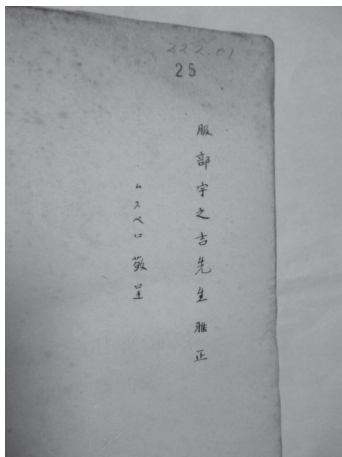 222.01
25
服部宇之吉先生雅正
ムスペロ敬呈